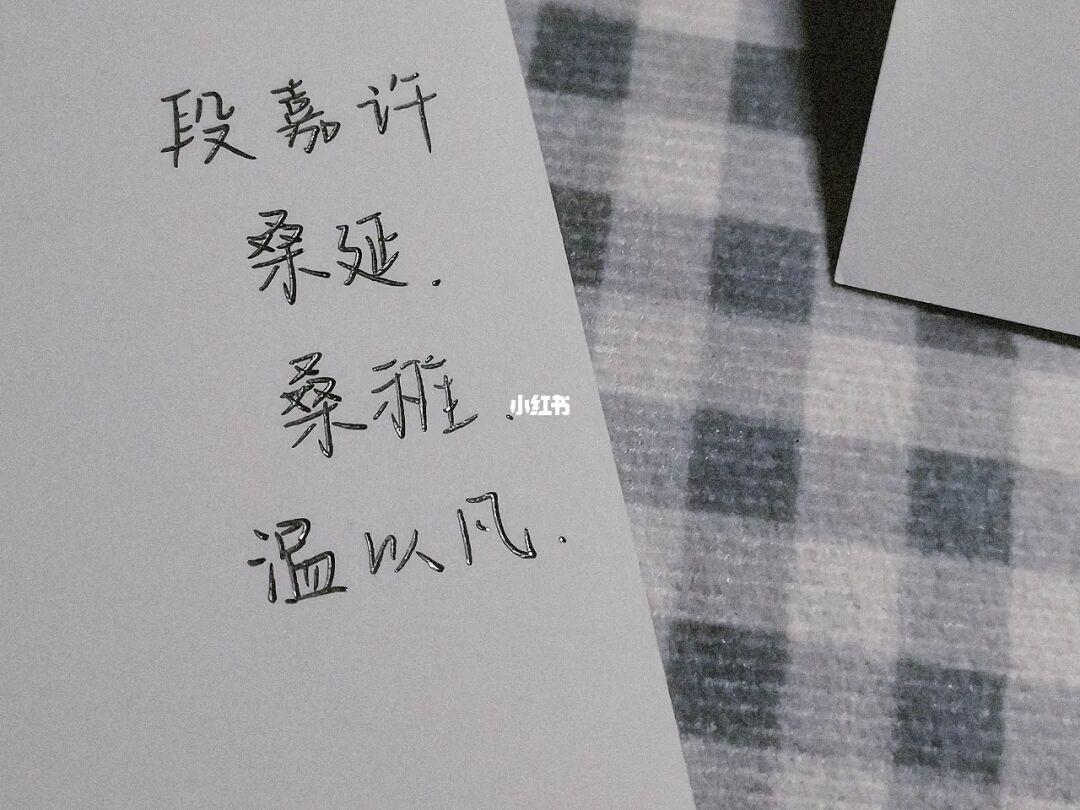 段嘉许
桑延.
桑稚.
小红书
温以凡.